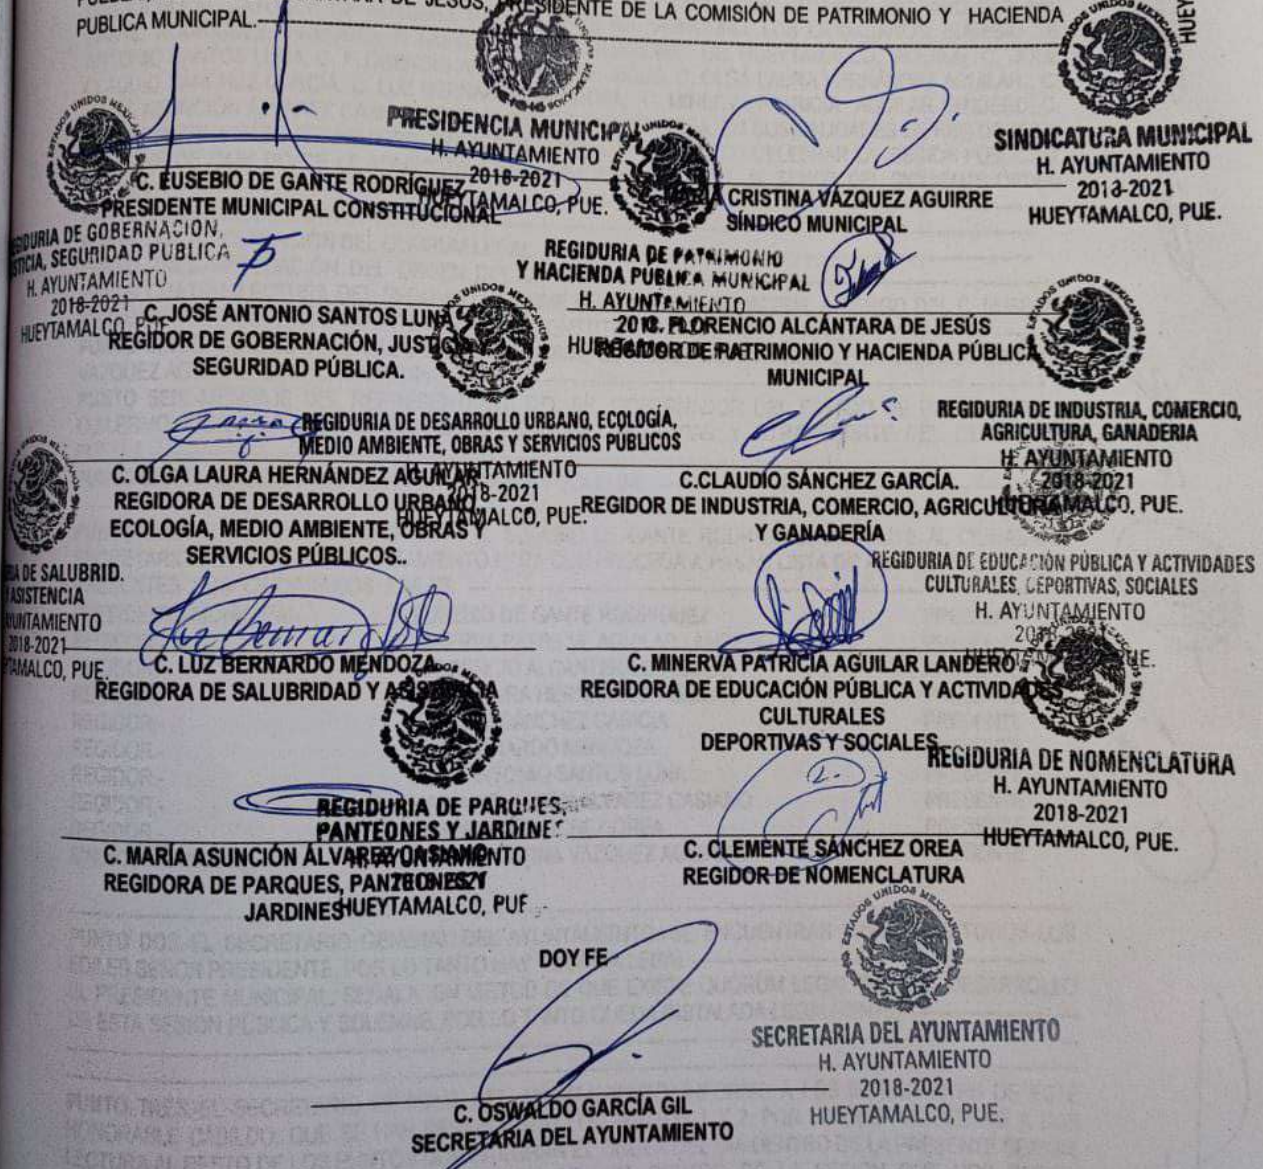 DE JESÚS, PRESIDENTE DE LA COMISIÓN DE PATRIMONIO Y HACIENDA
PUBLICA MUNICIPAL.
PRESIDENCIA MUNICIPAL
H. AYUNTAMIENTO
2018-2021
HUEYTAMALCO, PUE.
C. EUSEBIO DE GANTE RODRÍGUEZ
PRESIDENTE MUNICIPAL CONSTITUCIONAL
SINDICATURA MUNICIPAL
H. AYUNTAMIENTO
2018-2021
HUEYTAMALCO, PUE.
CRISTINA VÁZQUEZ AGUIRRE
SÍNDICO MUNICIPAL
DE GOBERNACIÓN,
SEGURIDAD PUBLICA
H. AYUNTAMIENTO
2018-2021
HUEYTAMALCO, PUE.
C. JOSÉ ANTONIO SANTOS LUNA
REGIDOR DE GOBERNACIÓN, JUSTICIA
SEGURIDAD PÚBLICA.
REGIDURIA DE PATRIMONIO
Y HACIENDA PUBLICA MUNICIPAL
H. AYUNTAMIENTO
C. FLORENCIO ALCÁNTARA DE JESÚS
REGIDOR DE PATRIMONIO Y HACIENDA PÚBLICA
MUNICIPAL
REGIDURIA DE DESARROLLO URBANO, ECOLOGÍA,
MEDIO AMBIENTE, OBRAS Y SERVICIOS PÚBLICOS
H. AYUNTAMIENTO
2018-2021
HUEYTAMALCO, PUE.
C. OLGA LAURA HERNÁNDEZ AGUILAR
REGIDORA DE DESARROLLO URBANO,
ECOLOGÍA, MEDIO AMBIENTE, OBRAS Y
SERVICIOS PÚBLICOS..
REGIDURIA DE INDUSTRIA, COMERCIO,
AGRICULTURA, GANADERIA
H. AYUNTAMIENTO
2018-2021
HUEYTAMALCO, PUE.
C.CLAUDIO SÁNCHEZ GARCÍA.
REGIDOR DE INDUSTRIA, COMERCIO, AGRICULTURA
Y GANADERÍA
DE SALUBRID.
ASISTENCIA
AYUNTAMIENTO
2018-2021
HUEYTAMALCO, PUE.
C. LUZ BERNARDO MENDOZA
REGIDORA DE SALUBRIDAD Y ASISTENCIA
REGIDURIA DE EDUCACIÓN PÚBLICA Y ACTIVIDADES
CULTURALES, DEPORTIVAS, SOCIALES
H. AYUNTAMIENTO
2018-2021
HUEYTAMALCO, PUE.
C. MINERVA PATRICIA AGUILAR LANDERO
REGIDORA DE EDUCACIÓN PÚBLICA Y ACTIVIDADES
CULTURALES
DEPORTIVAS Y SOCIALES
REGIDURIA DE PARQUES,
PANTEONES Y JARDINES
H. AYUNTAMIENTO
2018-2021
HUEYTAMALCO, PUE
C. MARÍA ASUNCIÓN ÁLVAREZ CASIANO
REGIDORA DE PARQUES, PANTEONES Y
JARDINES
REGIDURIA DE NOMENCLATURA
H. AYUNTAMIENTO
2018-2021
HUEYTAMALCO, PUE.
C. CLEMENTE SÁNCHEZ OREA
REGIDOR DE NOMENCLATURA
DOY FE
ESTADOS UNIDOS MEXICANOS
SECRETARIA DEL AYUNTAMIENTO
H. AYUNTAMIENTO
2018-2021
HUEYTAMALCO, PUE.
C. OSWALDO GARCÍA GIL
SECRETARIA DEL AYUNTAMIENTO